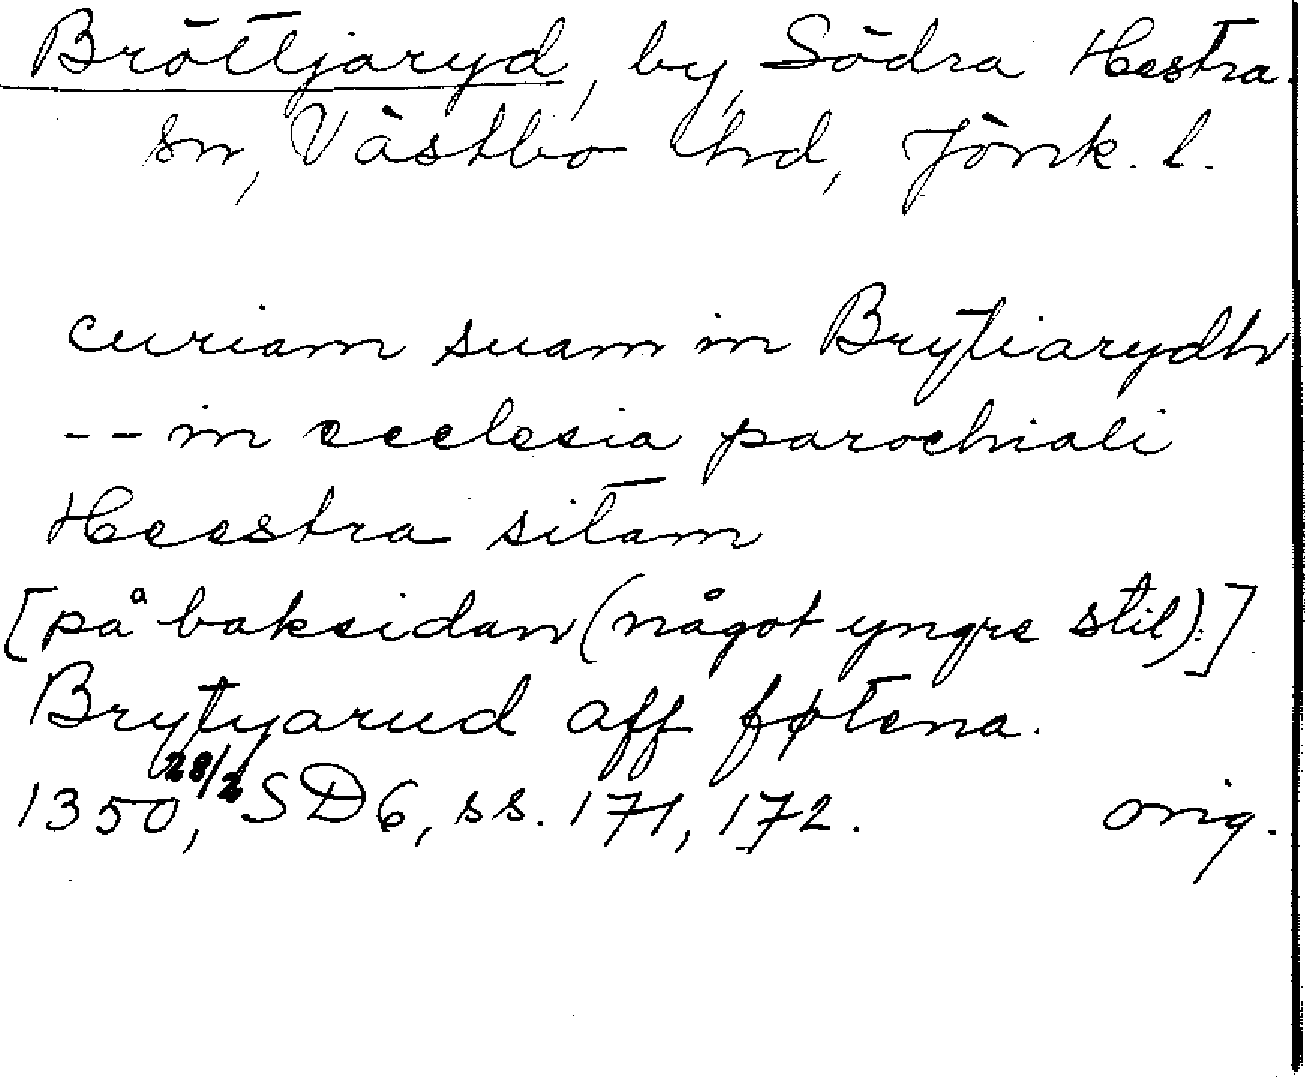 Bröttjaryd, by, Södra Hestra
sn, Västbo hd, Jönk. l.
curiam suam in Brytiarydh
-- in ecclesia parochiali
Heestra sitam
[på baksidan (något yngre stil):]
Brytyarud aff føtena.
1350, 28/2 SD 6, ss. 171, 172. orig.